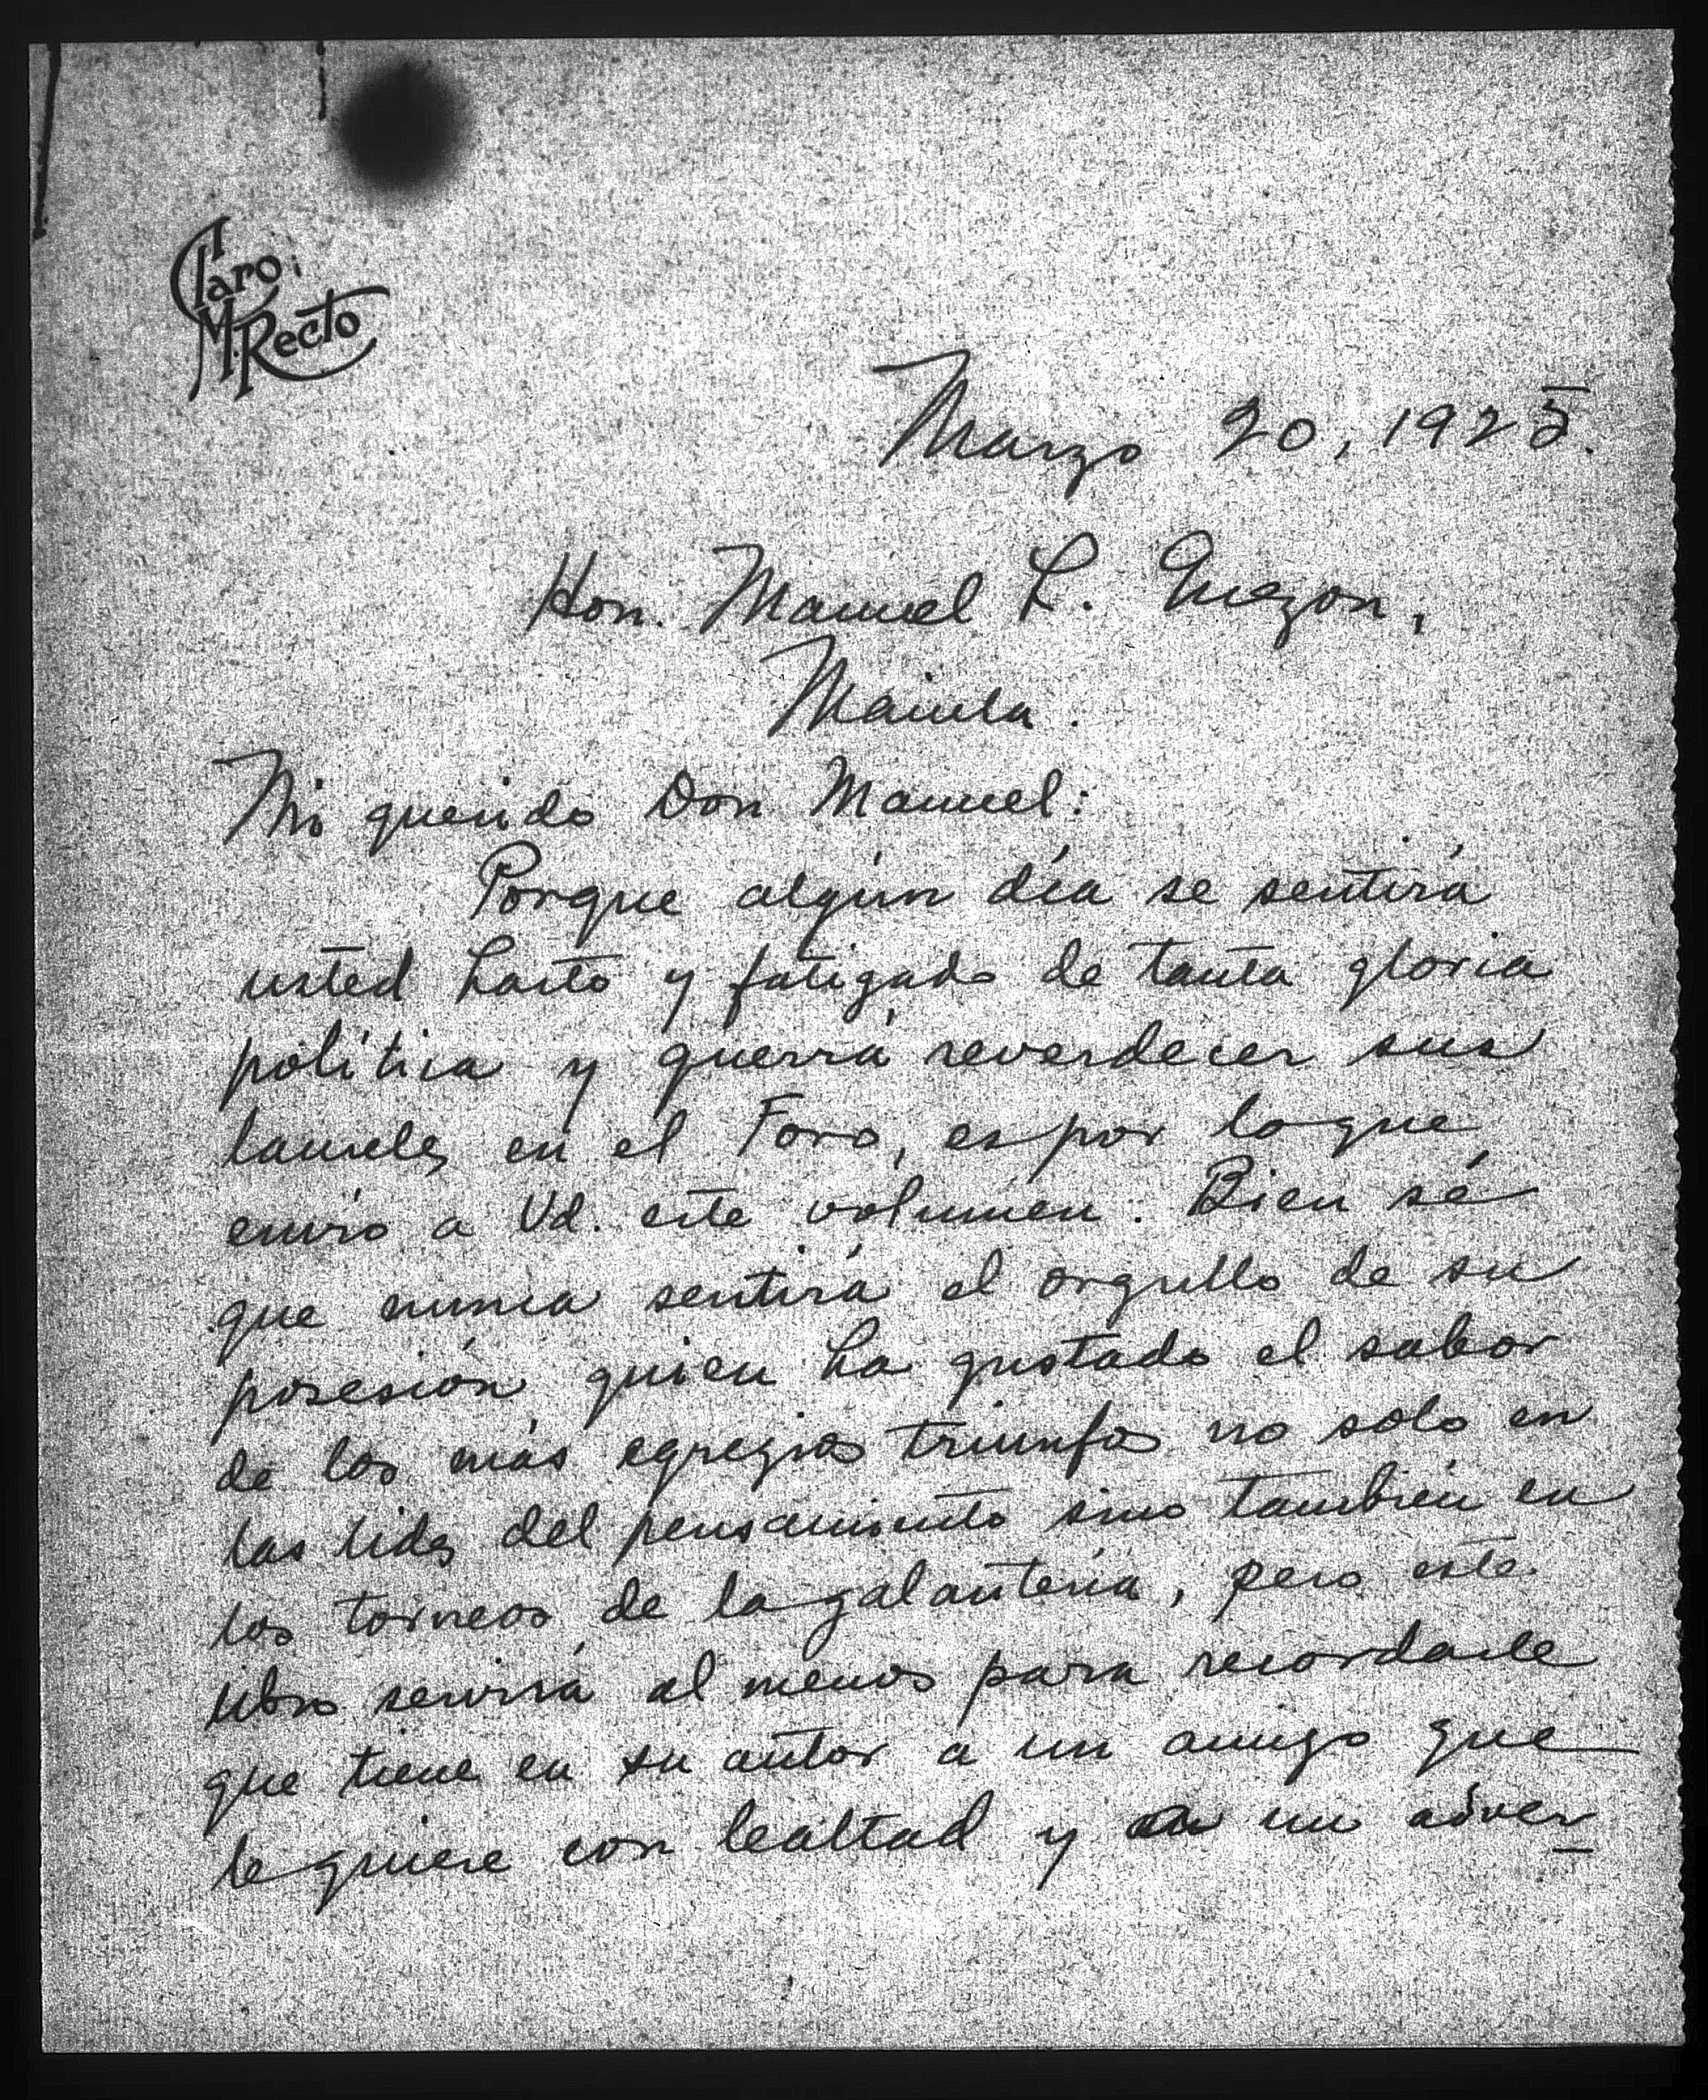 Claro M. Recto
Marzo 20, 1925.
Hon. Manuel L. Quezon,
Manila.
Mi querido Don Manuel:
Porque algún día se sentirá
usted harto y fatigado de tanta gloria
política y querrá reverdecer sus
laureles en el Foro, es por lo que
envío a Vd. este volumen. Bien sé
que nunca sentirá el orgullo de su
posesión quien ha gustado el sabor
de los más egregios triunfos no solo en
las lides del pensamiento sino también en
los torneos de la galantería, pero este
libro servirá al menos para recordarle
que tiene en su autor a un amigo que
le quiere con lealtad y a un adver-